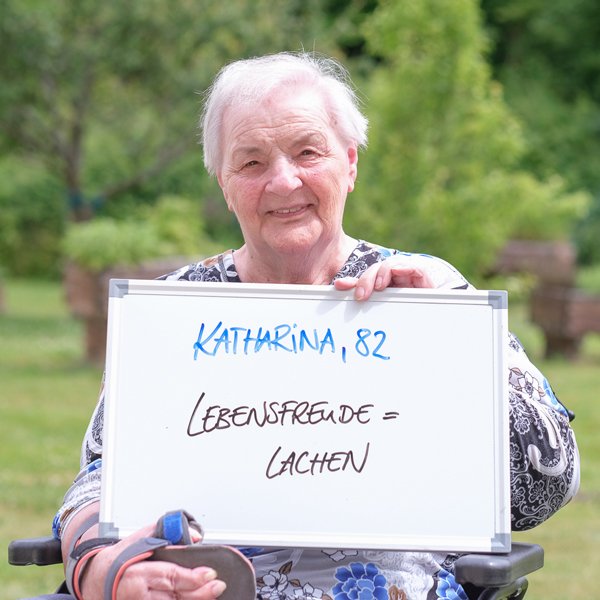 KATHARINA, 82
LEBENSFREUDE =
LACHEN